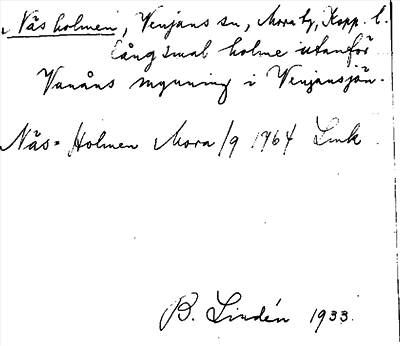 Näs holmen, Venjans sn, Mora tg, Kopp. l.
Långsmal holme utanför
Vanåns mynning i Venjansjön.
Näs= Holmen Mora /9 1964 Link
B. Lindén 1933.